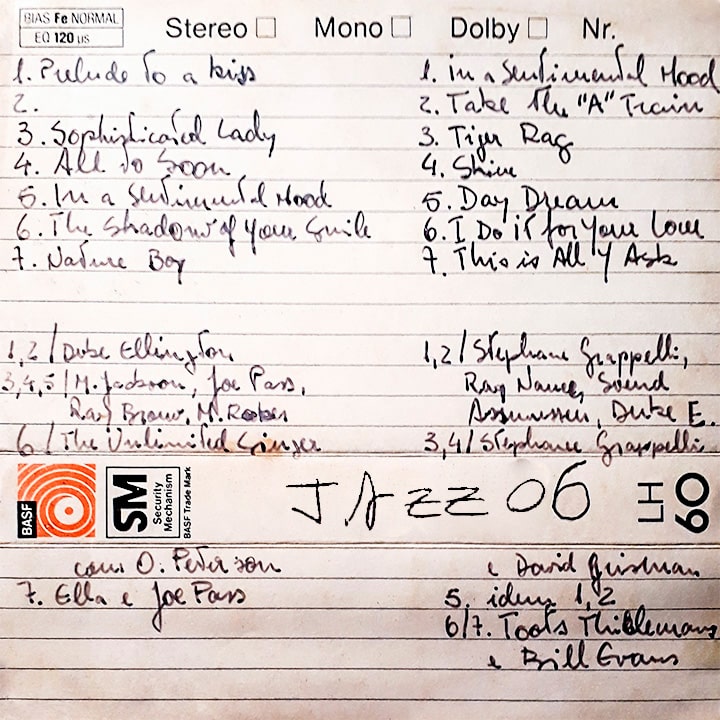 BIAS Fe NORMAL
EQ 120 µs
Stereo Mono Dolby Nr.
1. Prelude to a kiss
2.
3. Sophisticated Lady
4. All to Soon
5. In a Sentimental Mood
6. The Shadow of your Smile
7. Nature Boy
1. In a Sentimental Mood
2. Take the "A" Train
3. Tiger Rag
4. Shine
5. Day Dream
6. I Do it for your Love
7. This is All I Ask
1,2/ Duke Ellington
3,4,5/ M. Jackson, Joe Pass,
Ray Brown, M. Roker
6/ The Unlimited Singer
1,2/ Stephane Grappelli,
Ray Nance, Svend
Assmussen, Duke E.
3,4/ Stephane Grappelli
BASF
SM
Security
Mechanism
BASF Trade Mark
JAZZ 06
LH
60
com O. Peterson
7. Ella e Joe Pass
e David Grisman
5. idem 1,2
6/7. Toots Thiblemans
e Bill Evans